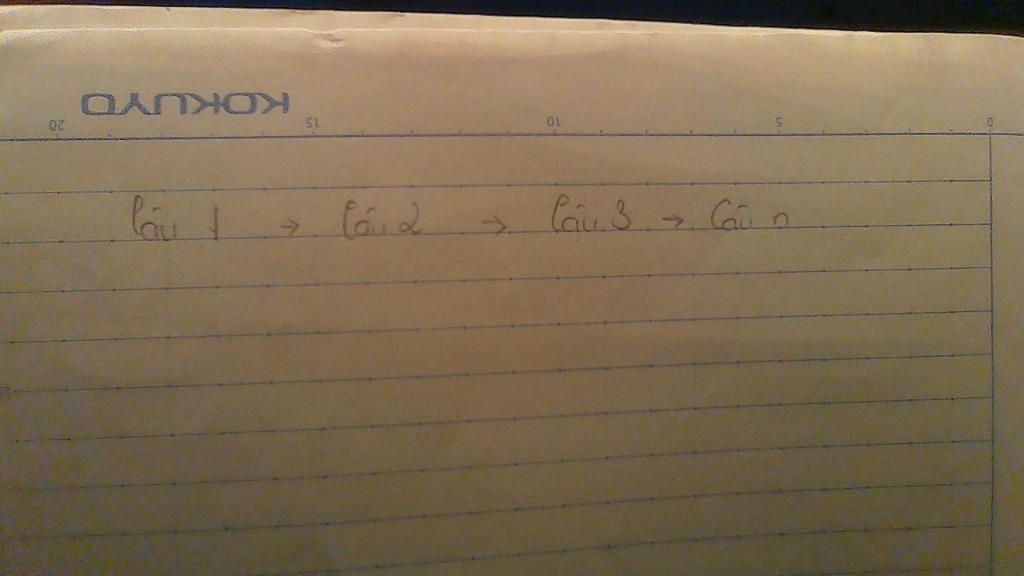 KOKUYO
20 15 10 5 0
Câu 1 → Câu 2 → Câu 3 → Câu n